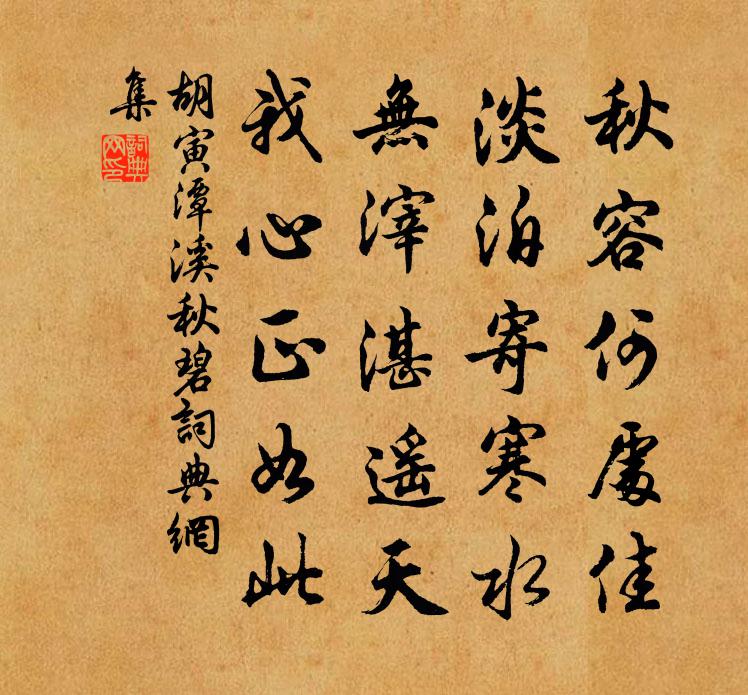 秋容何處佳
淡泊寄寒水
無滓湛遥天
我心正如此
胡寅潭溪秋碧詞典網
集
詞典
网印